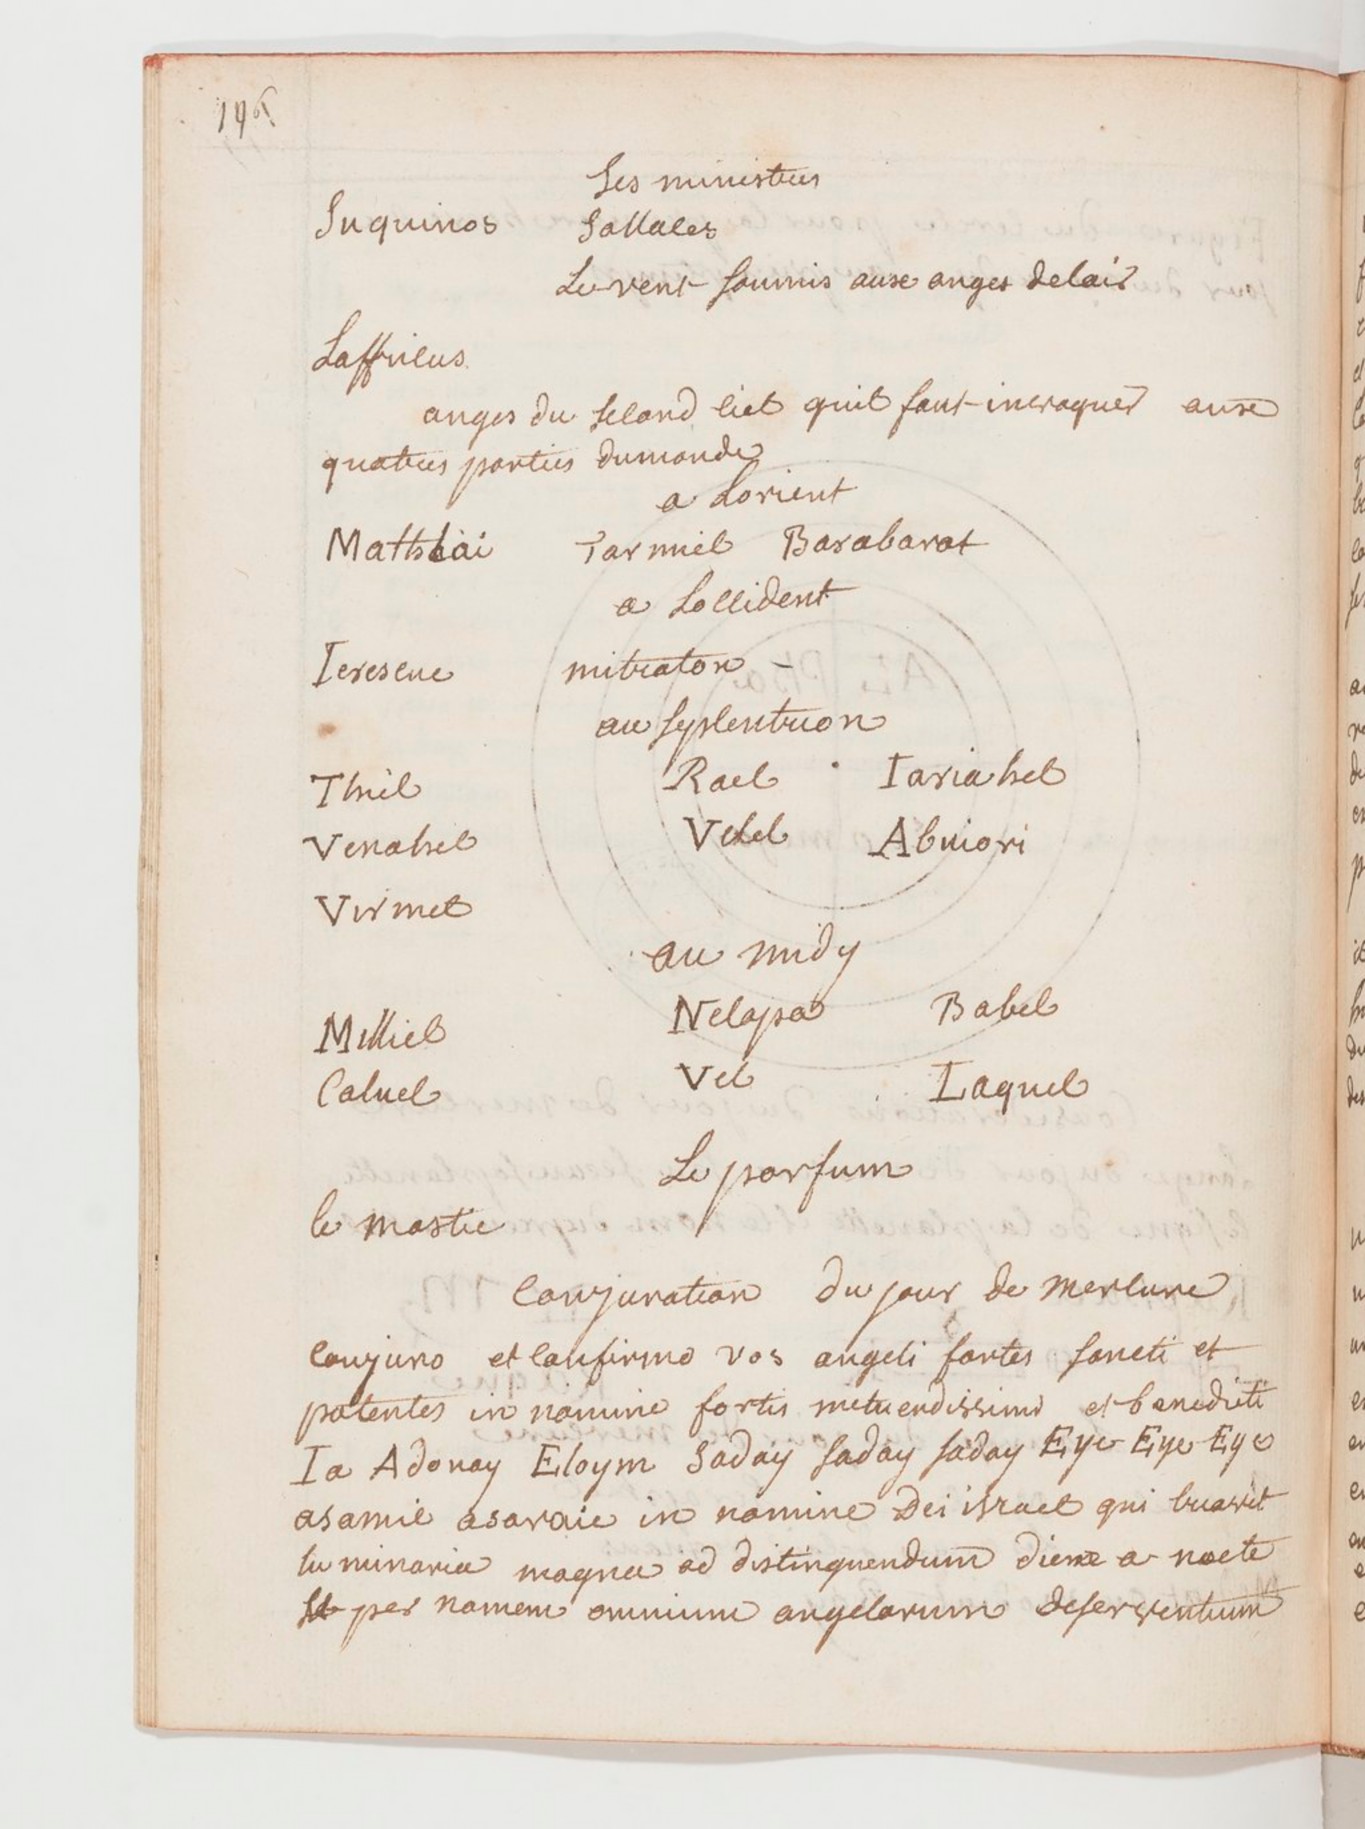 196
Ses ministres
Suquinos Sallales
Le vent soumis ause anges delair
Laffrieus
anges du second ciel quil faut invoquer ause
quatres parties dumonde
a Lorient
Mathlai Tarmiel Barabarat
a Loccident
Ieresene mitraton
au Septentrion
Thiel Rael Iariahel
Venahel Velel Abuiori
Virmel
au midy
Milliel Nelapa Babel
Caluel Vel Laquel
Le parfum
le mastic
Conjuration du jour de mercure
Conjuro et confirmo vos angeli fortes sancti et
potentes in nomine fortis metuendissimi et benedicti
Ia Adonay Eloym Saday saday saday Eye Eye Eye
asamie asaraie in nomine Dei israel qui creavit
luminaria magna ad distinguendum diem a nocte
et per nomem omnium angelorum deserventium